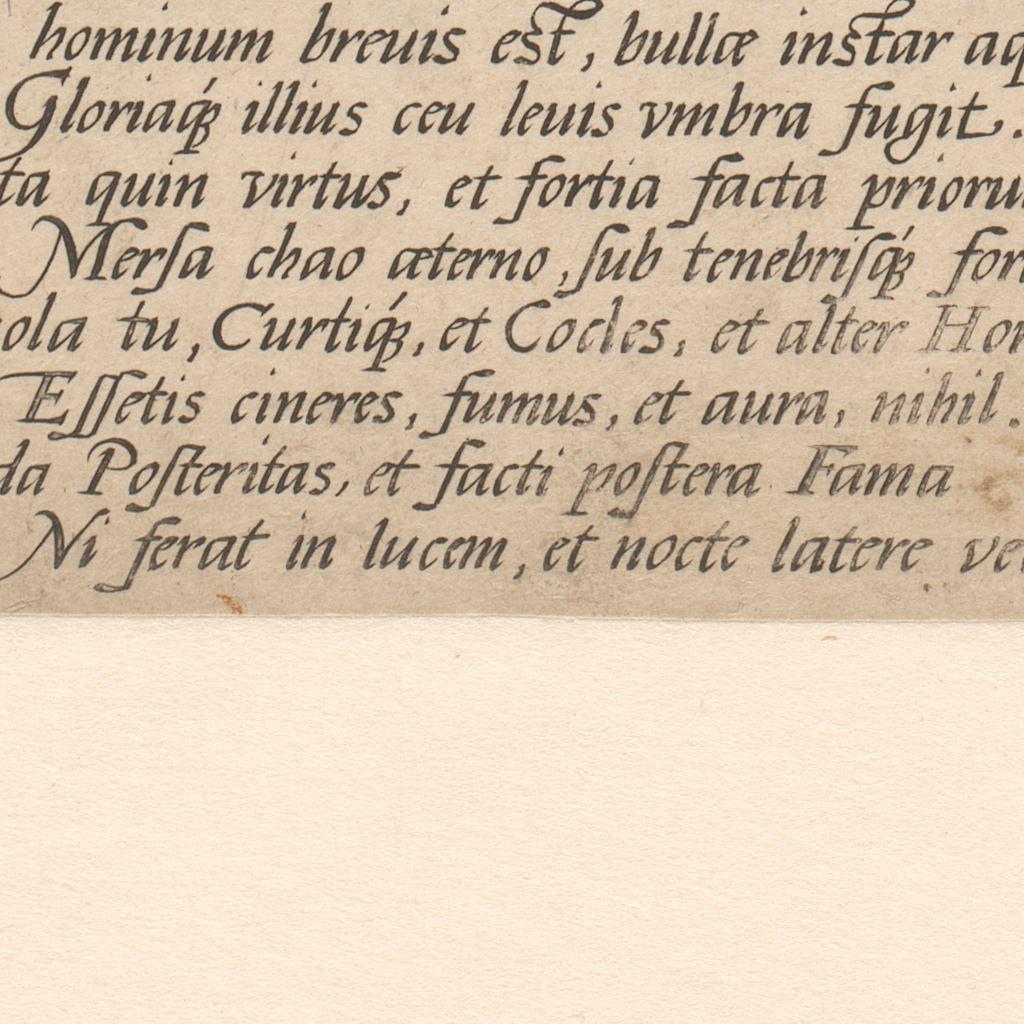 hominum breuis est, bullæ instar aq
Gloriaq́; illius ceu leuis vmbra fugit.
ta quin virtus, et fortia facta prioru
Merſa chao æterno, ſub tenebriſq́; for
ola tu, Curtiq́;, et Cocles, et alter Hor
Eſſetis cineres, fumus, et aura, nihil.
da Poſteritas, et facti poſtera Fama
Ni ferat in lucem, et nocte latere ve